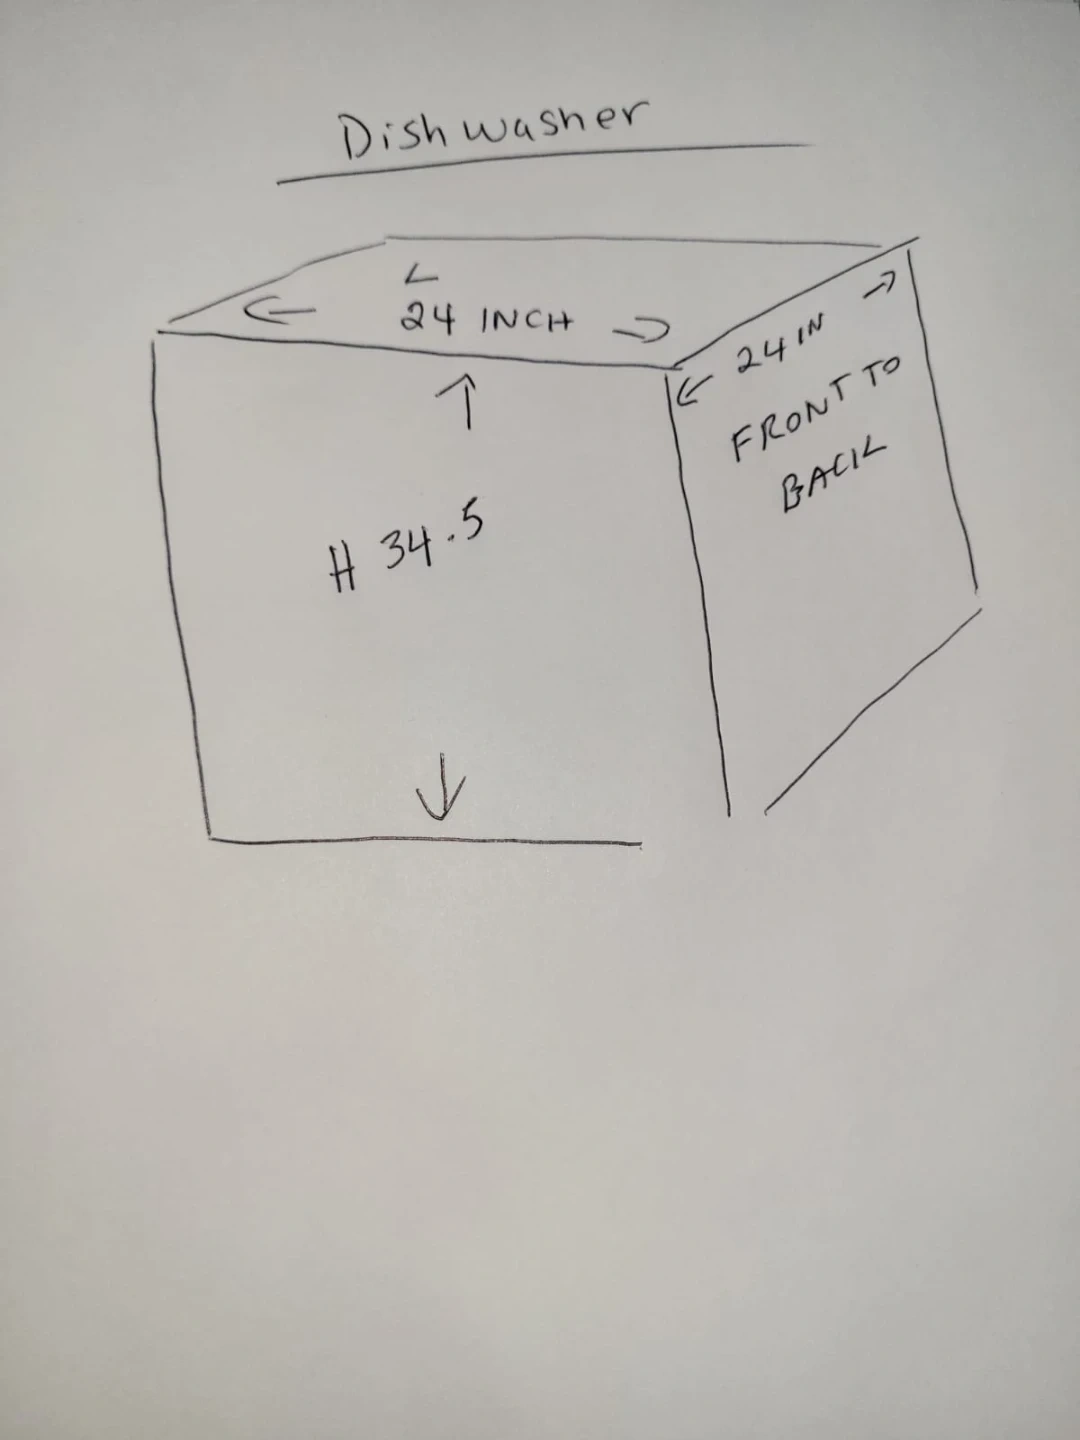 Dishwasher
L
24 INCH
24 IN
FRONT TO
BACK
H 34.5